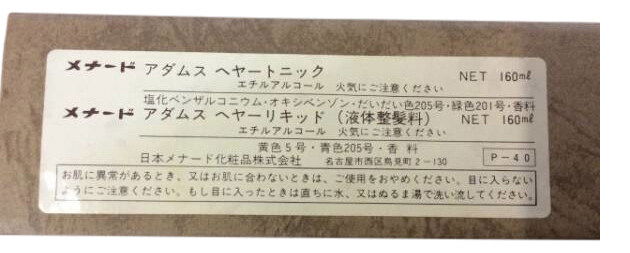 メナード アダムス ヘヤートニック NET 160ml
エチルアルコール 火気にご注意ください
塩化ベンザルコニウム・オキシベンゾン・だいだい色205号・緑色201号・香料
メナード アダムス ヘヤーリキッド（液体整髪料） NET 160ml
エチルアルコール 火気にご注意ください
黄色5号・青色205号・香料
日本メナード化粧品株式会社 名古屋市西区鳥見町2-130 P-40
お肌に異常があるとき、又はお肌に合わないときは、ご使用をおやめください。目に入らない
ようにご注意ください。もし目に入ったときは直ちに水、又はぬるま湯で洗い流してください。